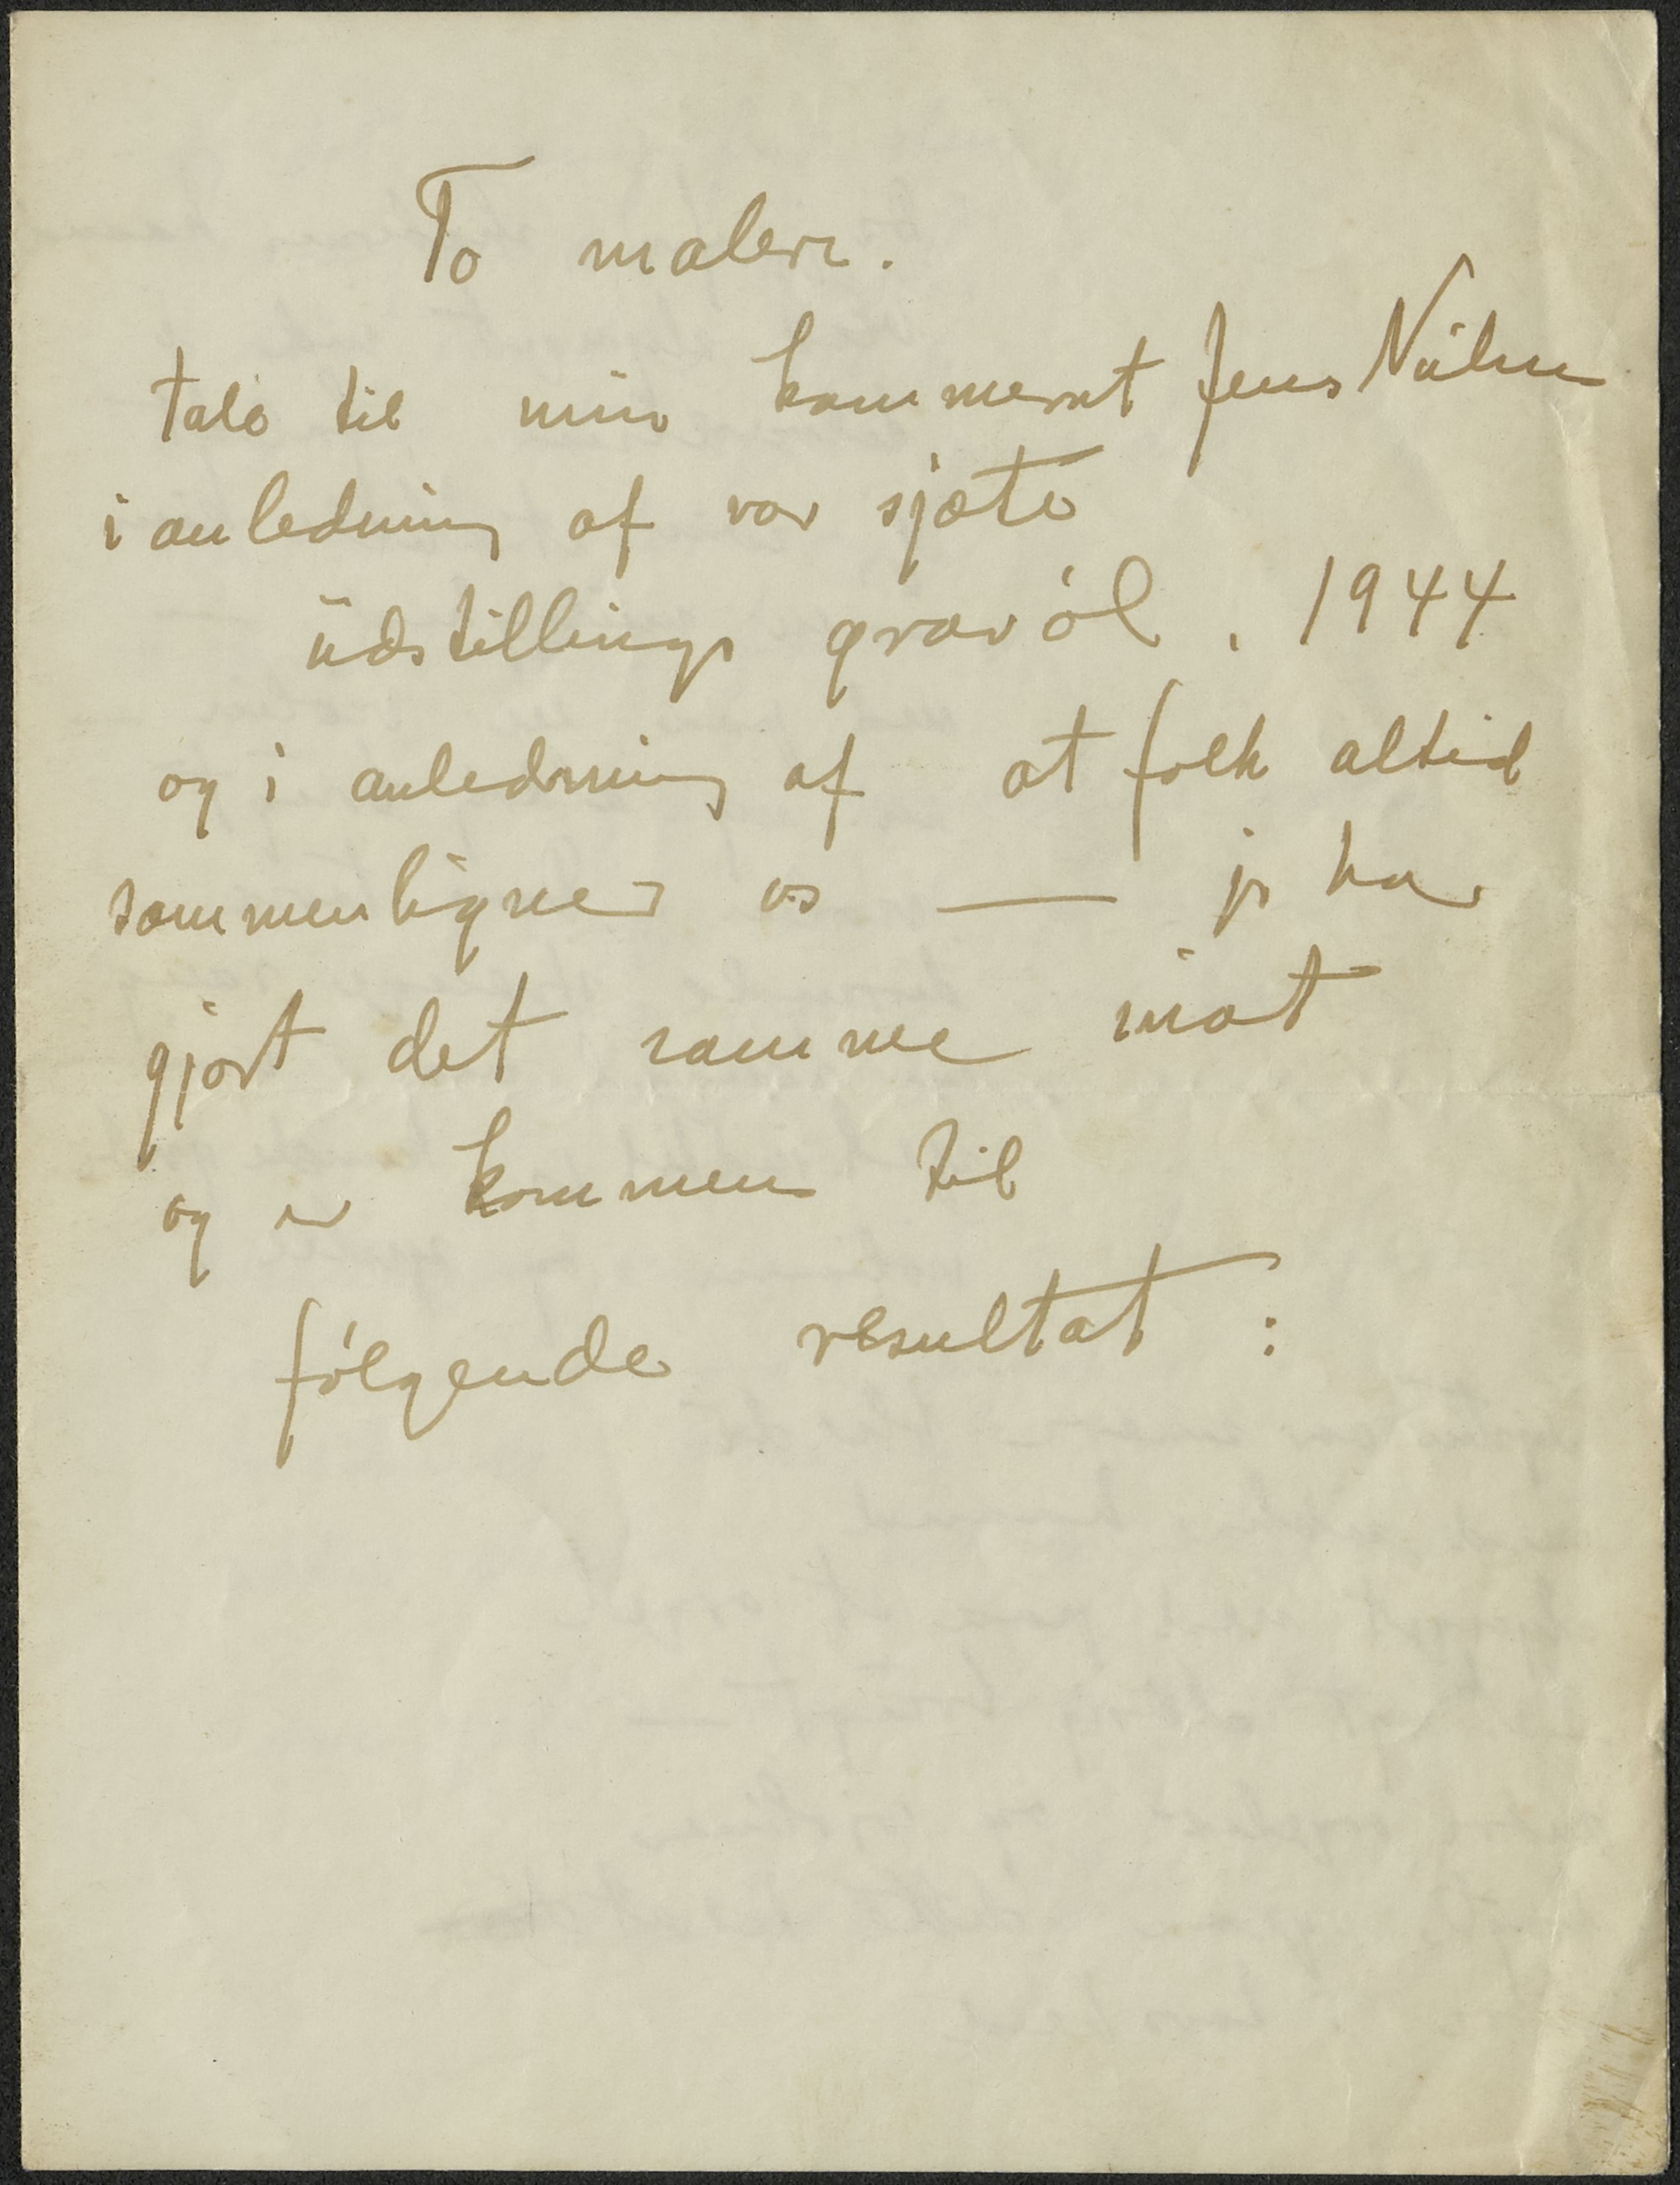 To malere.
Tale til min kammerat Jens Nielsen
i anledning af vor sjætte
udstillings gravøl. 1944
og i anledning af at folk altid
sammenligner os — jeg har
gjort det samme
og er kommen til
følgende resultat: